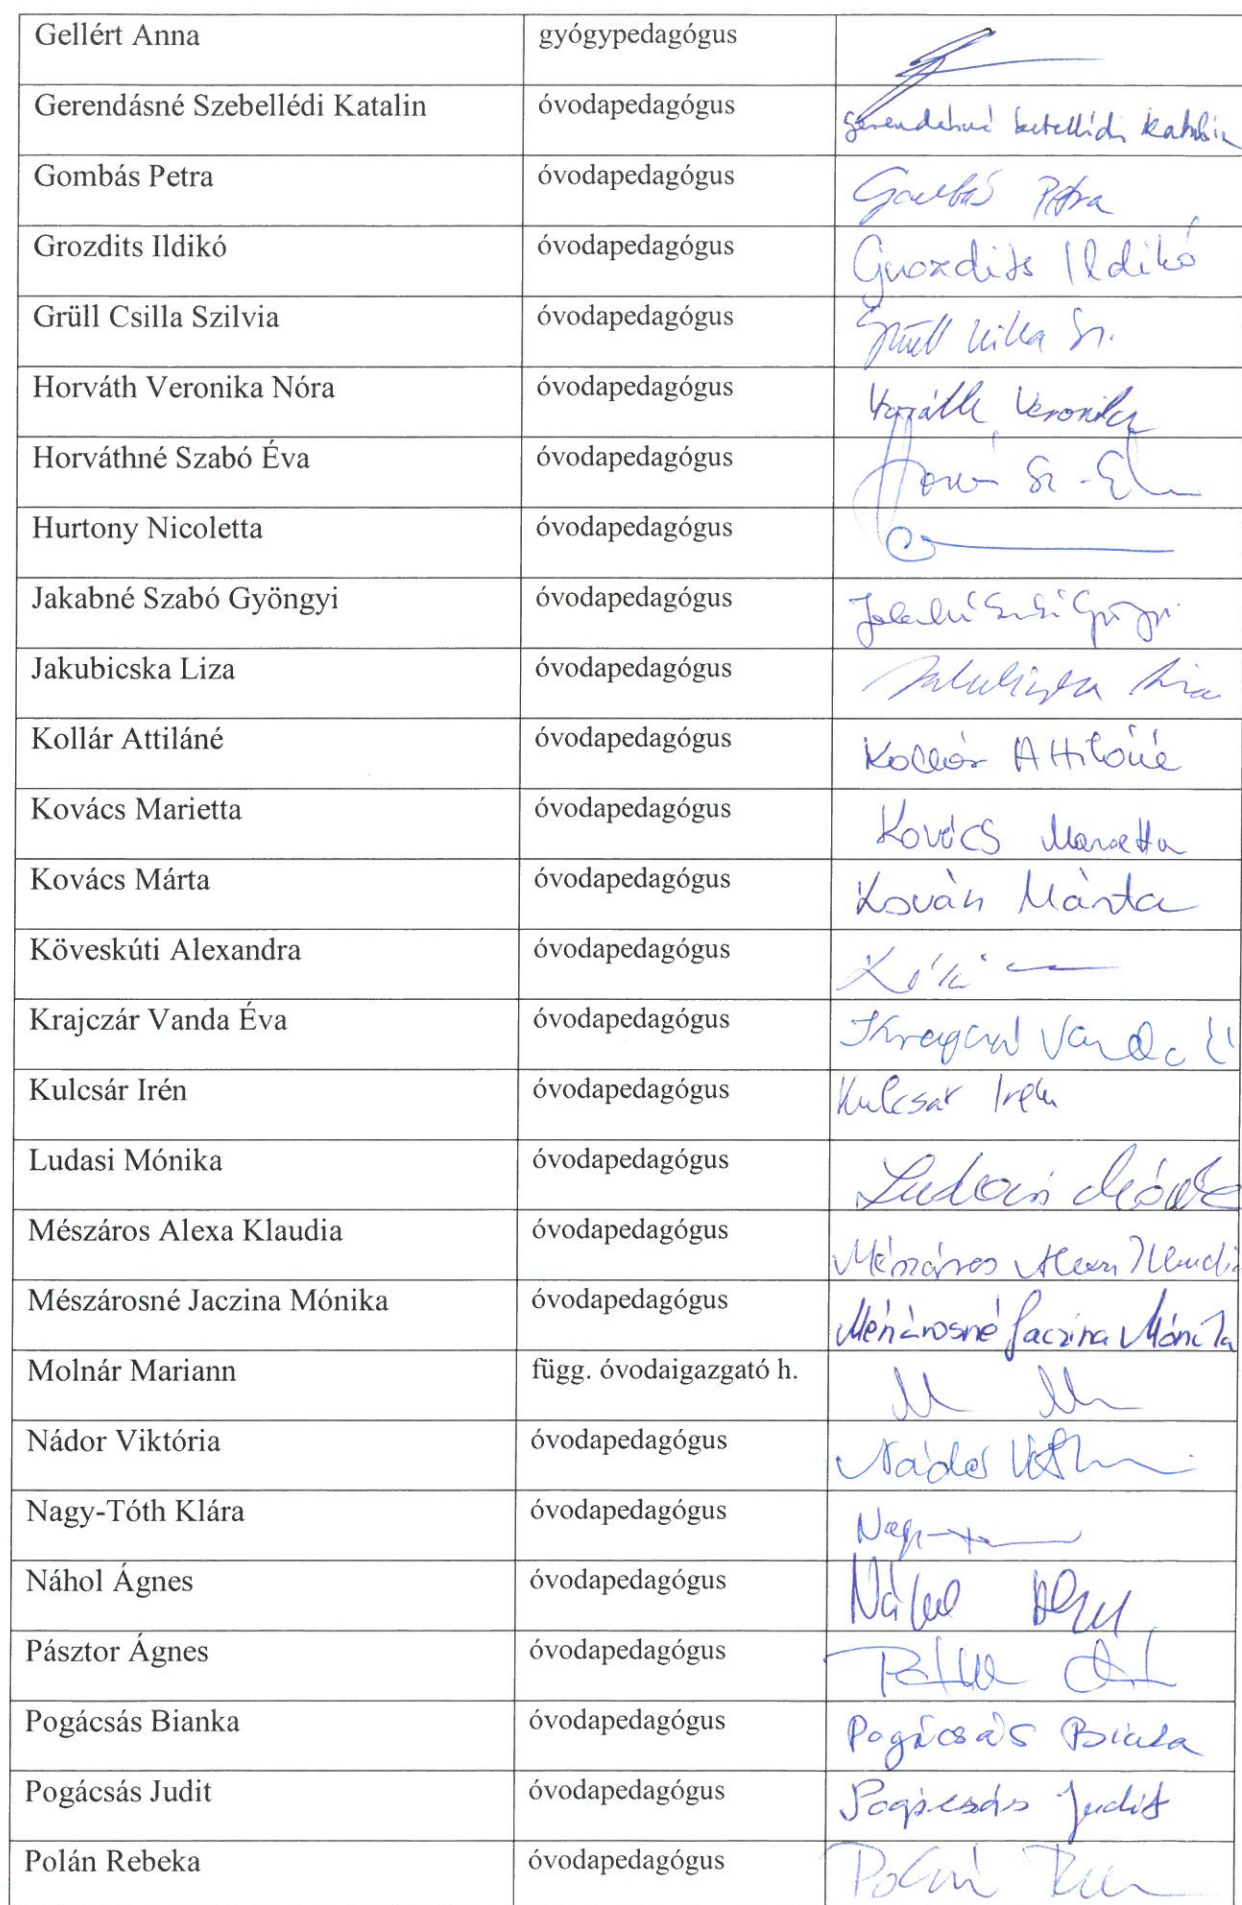 Gellért Anna gyógypedagógus
Gerendásné Szebellédi Katalin óvodapedagógus Katalin
Gombás Petra óvodapedagógus Gombás Petra
Grozdits Ildikó óvodapedagógus Grozdits Ildikó
Grüll Csilla Szilvia óvodapedagógus Grüll Csilla Sz.
Horváth Veronika Nóra óvodapedagógus Horváth Veronika
Horváthné Szabó Éva óvodapedagógus
Hurtony Nicoletta óvodapedagógus
Jakabné Szabó Gyöngyi óvodapedagógus
Jakubicska Liza óvodapedagógus Jakubicska Liza
Kollár Attiláné óvodapedagógus Kollár Attiláné
Kovács Marietta óvodapedagógus Kovács Marietta
Kovács Márta óvodapedagógus Kovács Márta
Köveskúti Alexandra óvodapedagógus
Krajczár Vanda Éva óvodapedagógus Krajczár Vanda É
Kulcsár Irén óvodapedagógus Kulcsár Irén
Ludasi Mónika óvodapedagógus Ludasi Mónika
Mészáros Alexa Klaudia óvodapedagógus Mészáros Alexa Klaudia
Mészárosné Jaczina Mónika óvodapedagógus Mészárosné Jaczina Mónika
Molnár Mariann függ. óvodaigazgató h.
Nádor Viktória óvodapedagógus Nádor
Nagy-Tóth Klára óvodapedagógus
Náhol Ágnes óvodapedagógus Náhol
Pásztor Ágnes óvodapedagógus
Pogácsás Bianka óvodapedagógus Pogácsás Bianka
Pogácsás Judit óvodapedagógus Pogácsás Judit
Polán Rebeka óvodapedagógus